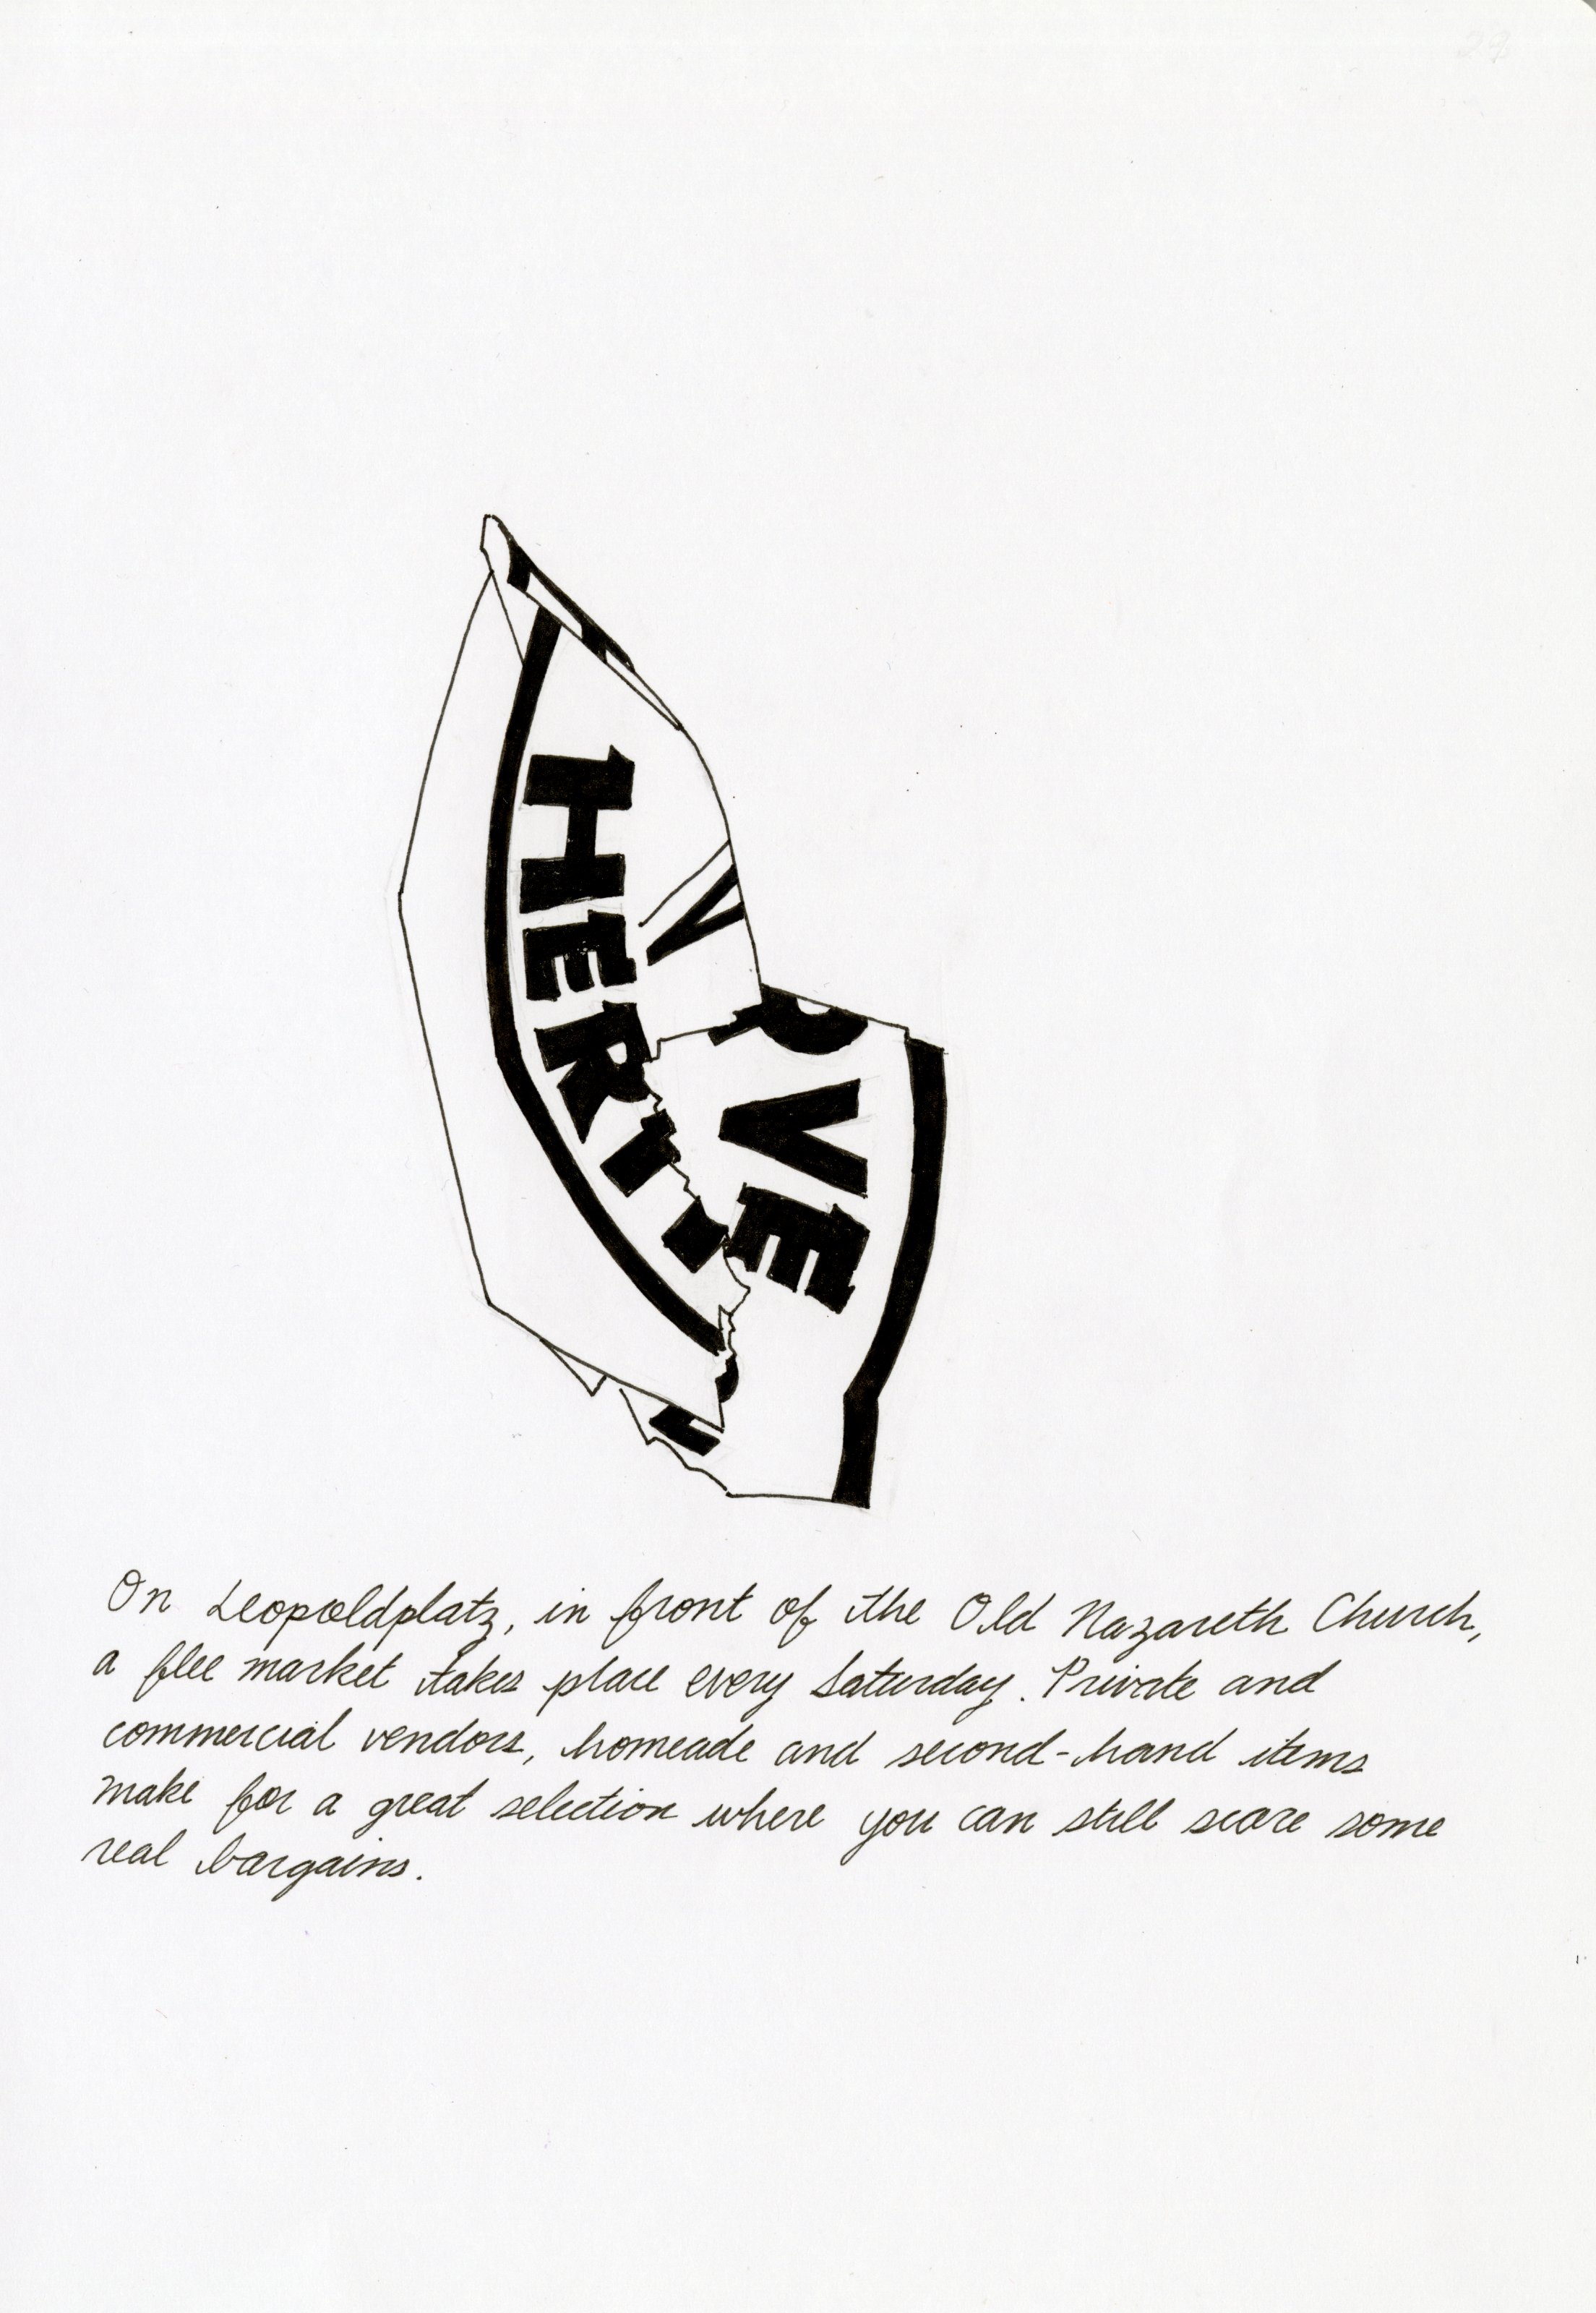 HERT
V
P
VE
On Leopoldplatz, in front of the Old Nazareth Church,
a flee market takes place every Saturday. Private and
commercial vendors, homeade and second-hand items
make for a great selection where you can still scare some
real bargains.